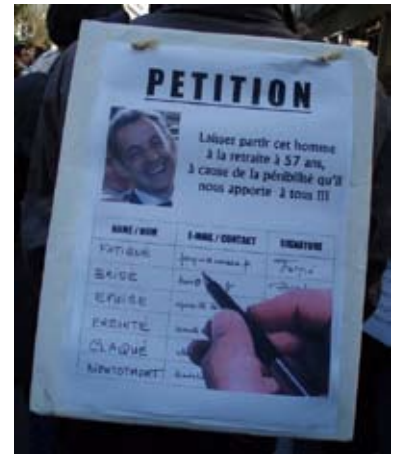 PETITION
Laisser partir cet homme
à la retraite à 57 ans,
à cause de la pénibilité qu'il
nous apporte à tous !!!
NAME / NOM E-MAIL / CONTACT SIGNATURE
FATIGUE
BRISE
EPUISE
EREINTÉ
CLAQUÉ
BIENTOTMORT